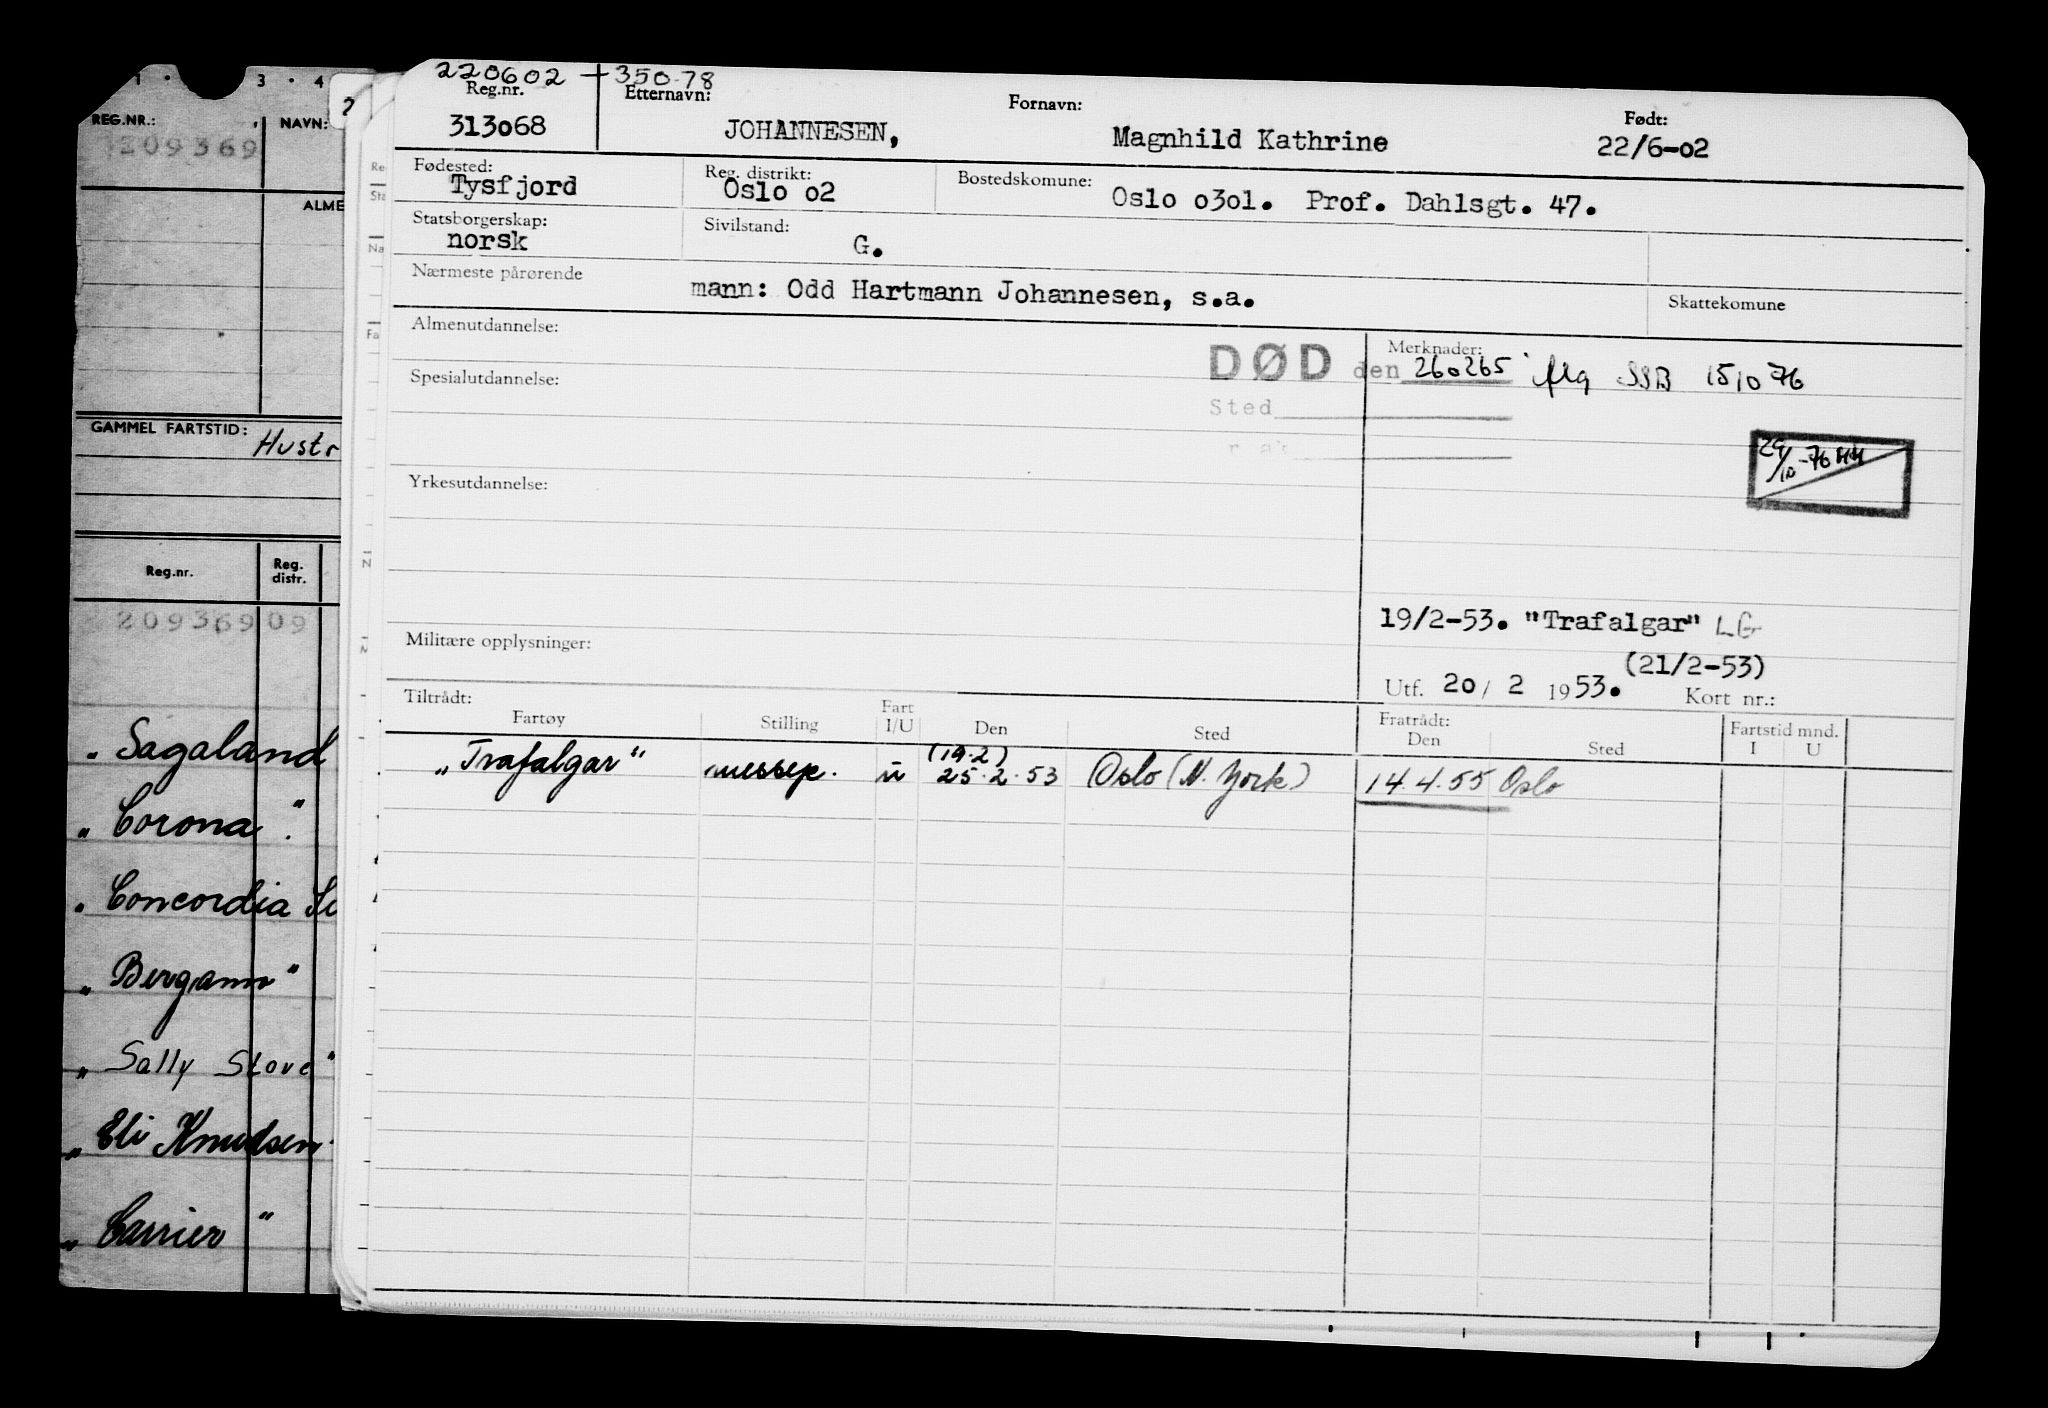 1 · 3 · 4
REG.NR.: NAVN:
209369
ALME
GAMMEL FARTSTID: Hustr
Reg.nr. Reg. distr.
209369 09
„Sagaland
„Corona".
„Concordia
„Bergamo"
„Sally Stove"
„Eli Knudsen
„Carrier"
2
220602 + 350-78
Reg.nr. Etternavn: Fornavn: Født:
313o68 JOHANNESEN, Magnhild Kathrine 22/6-o2
Fødested: Reg. distrikt: Bostedskomune:
Tysfjord Oslo o2 Oslo o3ol. Prof. Dahlsgt. 47.
Statsborgerskap: Sivilstand:
norsk G.
Nærmeste pårørende mann: Odd Hartmann Johannesen, s.a. Skattekomune
Almenutdannelse: Merknader:
DØD den 260265 iflg SSB 151076
Spesialutdannelse:
Sted
29/10-76 HH
Yrkesutdannelse:
19/2-53. "Trafalgar" LG
Militære opplysninger: (21/2-53)
Utf. 2o/ 2 1953. Kort nr.:
Tiltrådt: Fratrådt: Fartstid mnd.
Fartøy Stilling Fart I/U Den Sted Den Sted I U
„Trafalgar" messep. u (19.2) 25.2.53 Oslo (N. York) 14.4.55 Oslo